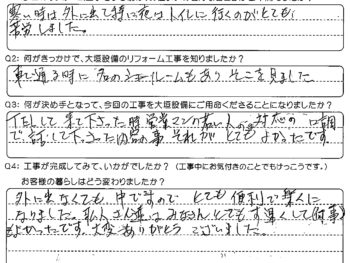 寒い時は外に出て特に夜はトイレに行くのがとても
苦労しました。
Q2: 何がきっかけで、大垣設備のリフォーム工事を知りましたか?
車で通る時に 右のショールームもあり そこを見ました
Q3: 何が決め手となって、今回の工事を大垣設備にご用命くださることになりましたか?
TELして来て下さった時営業マンの若い人の対応の口調
で、話して下さった内容の事、それがとてもよかったです。
Q4: 工事が完成してみて、いかがでしたか?(工事中にお気付きのことでもけっこうです。)
お客様の暮らしはどう変わりましたか?
外に出なくても 中ですので とても便利で楽に
なりました。職人さん達はみなさんとても手早くして(仕事)
もよかったです。大変ありがとうございました。